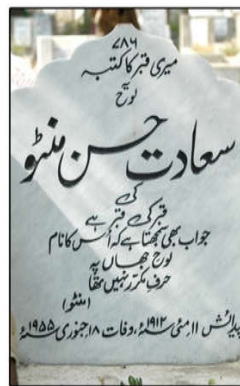 ۷۸۶
میری قبر کا کتبہ
لوح
سعادت حسن منٹو
کی
قبر کی قبر ہے
جو اب بھی سمجھتا ہے کہ اُس کا نام
لوحِ جہاں پہ
حرفِ مکرر نہیں تھا
(منٹو)
پیدائش ۱۱ مئی ۱۹۱۲ء، وفات ۱۸ جنوری ۱۹۵۵ء